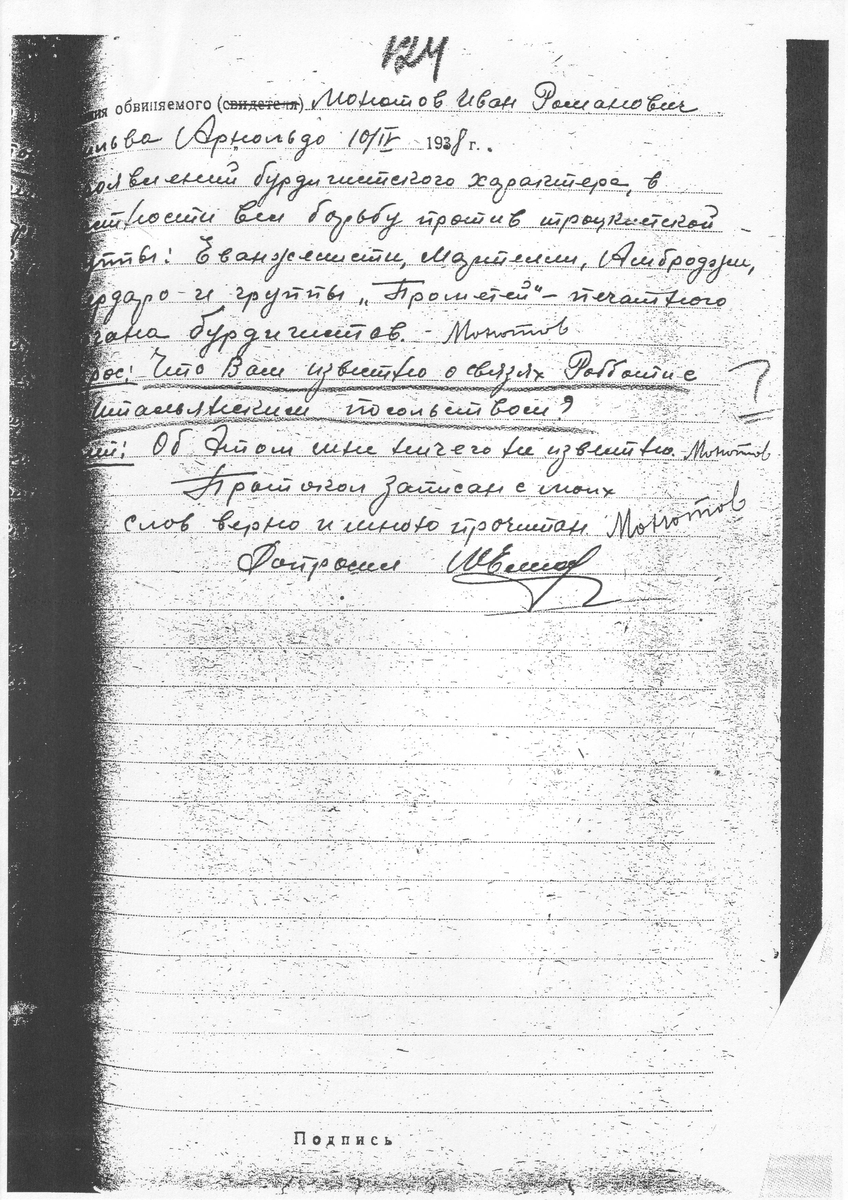 124
ния обвиняемого (свидетеля) Монотов Иван Романович
льва Арнольдо 10/IV 1938 г.
оявлений бурдигистского характера, в
стности вел борьбу против троцкистской
ппы: Еванжелисти, Мартелли, Амброджи,
рдаро и группы „Прометей" – печатного
гана бурдигистов. – Монотов
рос: Что Вам известно о связях Робботи с
Итальянским посольством?
ет: Об этом мне ничего не известно. Монотов
Протокол записан с моих
слов верно и мною прочитан Монотов
Допросил
Подпись